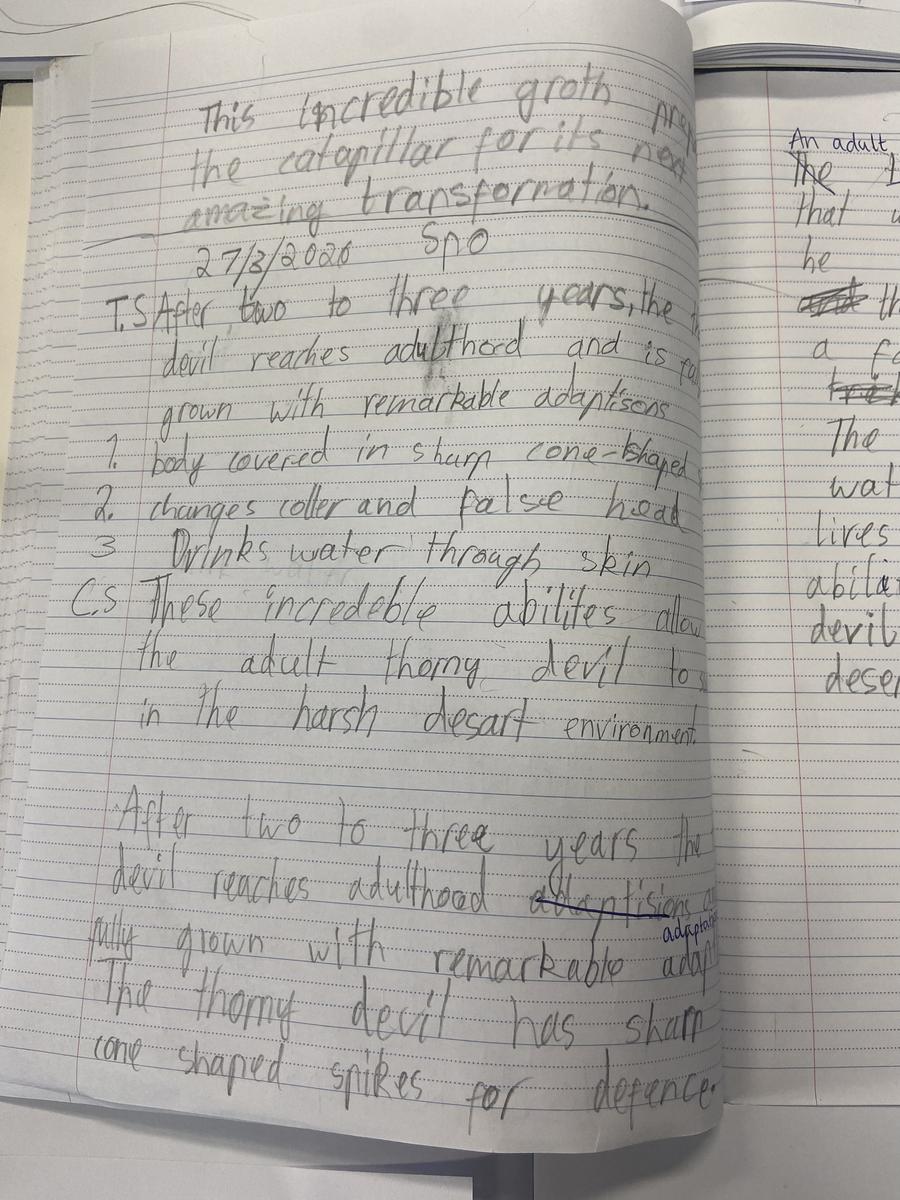 This incredible groth
the catapillar for its next
amazing transformation.
27/3/2026 Spo
T.S After two to three years, the
devil reaches adulthood and is
grown with remarkable adaptisons
1. body covered in sharp cone-shaped
2. changes coller and false head
3 Drinks water through skin
C.S These incredeble abilites allow
the adult thorny devil to
in the harsh desart environment.
After two to three years the
devil reaches adulthood adaptisions
adaptat
fully grown with remarkable adapt
The thorny devil has sharp
cone shaped spikes for defence.
An adult
The
that
he
a
The
wat
lives
devil
deser